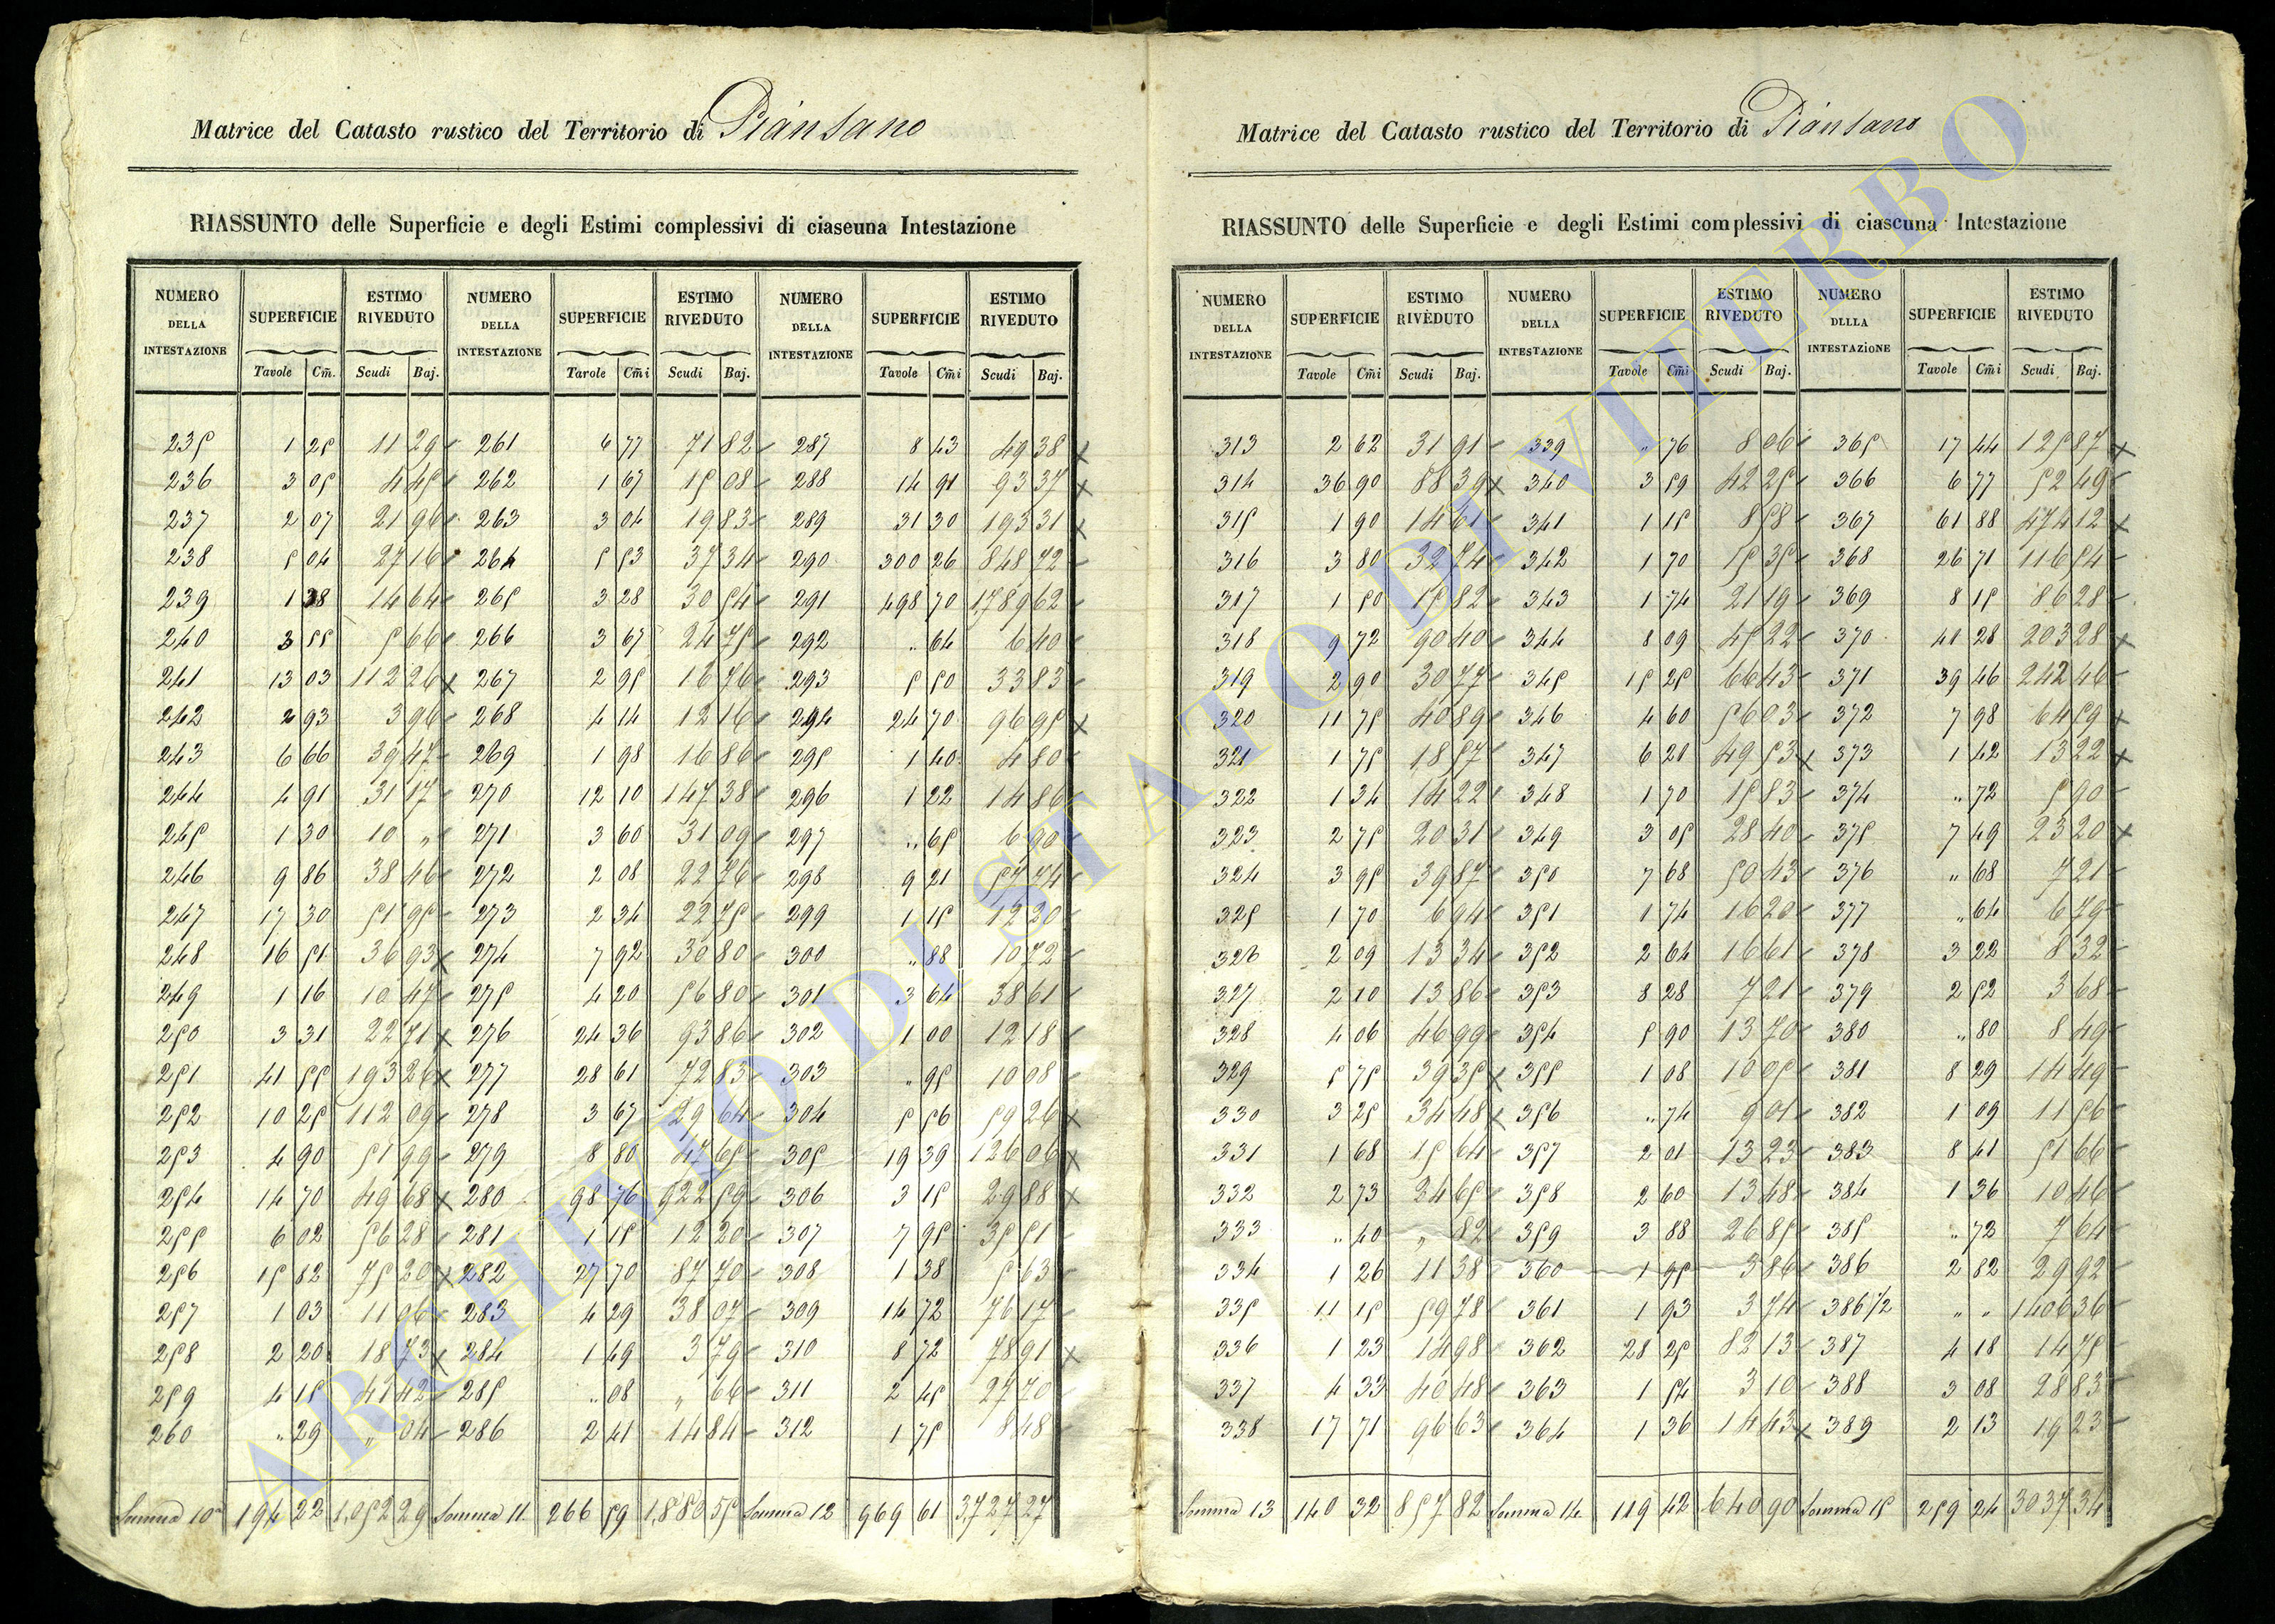 Matrice del Catasto rustico del Territorio di Piansano
RIASSUNTO delle Superficie e degli Estimi complessivi di ciaseuna Intestazione
NUMERO DELLA INTESTAZIONE SUPERFICIE ESTIMO RIVEDUTO NUMERO DELLA INTESTAZIONE SUPERFICIE ESTIMO RIVEDUTO NUMERO DELLA INTESTAZIONE SUPERFICIE ESTIMO RIVEDUTO
Tavole Cm̃. Scudi Baj. Tarole Cm̃i Scudi Baj. Tavole Cm̃i Scudi Baj.
235 1 25 11 29 261 6 77 71 82 287 8 43 49 38 x
236 3 05 4 45 262 1 67 15 08 288 14 91 93 37 x
237 2 07 21 96 263 3 04 19 83 289 31 30 193 31 x
238 5 04 27 16 264 5 53 37 34 290 300 26 848 72
239 1 38 14 64 265 3 28 30 54 291 498 70 1789 62
240 3 55 5 66 266 3 67 24 75 292 .. 64 6 40
241 13 03 112 26 x 267 2 95 16 76 293 5 50 33 83
242 2 93 3 96 268 4 14 12 16 294 24 70 96 95 x
243 6 66 39 47 269 1 98 16 86 295 1 40 4 80
244 4 91 31 17 270 12 10 147 38 296 1 22 14 86
245 1 30 10 „ 271 3 60 31 09 297 .. 65 6 90
246 9 86 38 46 272 2 08 22 76 298 9 21 57 74
247 17 30 51 95 273 2 34 22 75 299 1 15 12 30
248 16 51 36 93 x 274 7 92 30 80 300 .. 88 10 72
249 1 16 10 47 275 4 20 56 80 301 3 64 38 61
250 3 31 22 71 x 276 24 36 93 86 302 1 00 12 18
251 41 55 193 26 x 277 28 61 72 83 303 .. 95 10 08
252 10 25 112 09 278 3 67 29 64 304 5 56 59 26 x
253 4 90 51 99 279 8 80 47 65 305 19 39 126 06 x
254 14 70 49 68 x 280 98 76 922 59 306 3 15 29 88 x
255 6 02 56 28 281 1 15 12 20 307 7 95 35 51
256 15 82 75 20 x 282 27 70 87 70 308 1 38 5 63
257 1 03 11 06 283 4 29 38 07 309 14 72 76 17
258 2 20 18 73 x 284 1 49 3 79 310 8 72 78 91 x
259 4 15 41 42 285 .. 08 „ 66 311 2 45 27 70
260 .. 29 „ 04 286 2 41 14 84 312 1 75 8 48
Somma 10a 194 22 1,052 29 Somma 11 266 59 1,880 55 Somma 12 969 61 3,727 27
Matrice del Catasto rustico del Territorio di Piansano
RIASSUNTO delle Superficie e degli Estimi complessivi di ciascuna Intestazione
NUMERO DELLA INTESTAZIONE SUPERFICIE ESTIMO RIVEDUTO NUMERO DELLA INTESTAZIONE SUPERFICIE ESTIMO RIVEDUTO NUMERO DLLLA INTESTAZiONE SUPERFICIE ESTIMO RIVEDUTO
Tavole Cm̃i Scudi Baj. Tavole Cm̃i Scudi Baj. Tavole Cm̃i Scudi Baj.
313 2 62 31 91 339 .. 76 8 06 365 17 44 125 87 x
314 36 90 88 39 x 340 3 59 42 25 366 6 77 52 49
315 1 90 14 61 341 1 15 8 58 367 61 88 474 12 x
316 3 80 32 74 342 1 70 15 35 368 26 71 116 54
317 1 50 15 82 343 1 74 21 19 369 8 15 86 28
318 9 72 90 40 344 8 09 45 22 370 41 28 203 28 x
319 2 90 30 77 345 15 25 66 43 371 39 46 242 46
320 11 75 40 89 346 4 60 56 03 372 7 98 64 59 x
321 1 75 18 57 347 6 21 49 53 x 373 1 42 13 22 x
322 1 34 14 22 348 1 70 15 83 374 .. 72 5 90
323 2 75 20 31 349 3 05 28 40 375 7 49 23 20 x
324 3 95 39 87 350 7 68 50 43 376 .. 68 7 21
325 1 70 6 94 351 1 74 16 20 377 .. 64 6 79
326 2 09 13 34 352 2 64 16 61 378 3 22 8 32
327 2 10 13 86 353 8 28 7 21 379 2 52 3 68
328 4 06 46 99 354 5 90 13 70 380 .. 80 8 49
329 5 75 39 35 x 355 1 08 10 05 381 8 29 14 49
330 3 25 34 48 x 356 .. 74 9 01 382 1 09 11 56
331 1 68 15 64 357 2 01 13 23 383 8 41 51 66
332 2 73 24 65 358 2 60 13 48 384 1 36 10 46
333 .. 40 „ 82 359 3 88 26 85 385 .. 72 7 64
334 1 26 11 38 360 1 95 3 86 386 2 82 29 92
335 11 15 59 78 361 1 93 3 74 386 1/2 „ „ 1406 36
336 1 23 14 98 362 28 25 82 13 387 4 18 14 75
337 4 33 40 48 363 1 54 3 10 388 3 08 28 83
338 17 71 96 63 364 1 36 14 43 x 389 2 13 19 23
Somma 13 140 32 857 82 Somma 14 119 42 640 90 Somma 15 259 24 3037 34
ARCHIVIO DI STATO DI VITERBO